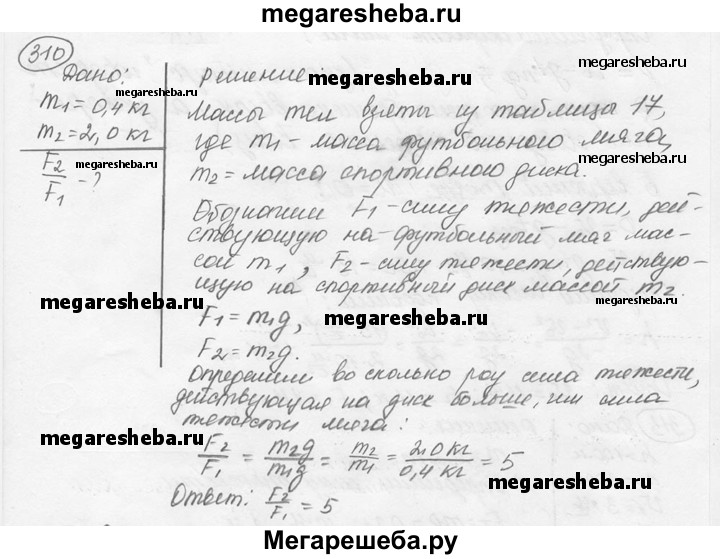 megaresheba.ru
310
Дано:
megaresheba.ru
m1 = 0,4 кг
m2 = 2,0 кг
F2/F1 - ?
megaresheba.ru
решение:
megaresheba.ru
Массы тел взяты из таблица 17,
где m1 - масса футбольного мяча,
megaresheba.ru
m2 = масса спортивного диска.
megaresheba.ru
Обозначим F1 - силу тяжести, дей-
ствующую на футбольный мяч мас-
сой m1, F2 - силу тяжести, действую-
щую на спортивный диск массой m2.
megaresheba.ru
megaresheba.ru
F1 = m1g,
megaresheba.ru
F2 = m2g.
Определим во сколько раз сила тяжести,
действующая на диск больше, чем сила
тяжести мяча:
megaresheba.ru
megaresheba.ru
F2/F1 = m2g/m1g = m2/m1 = 2,0 кг/0,4 кг = 5
megaresheba.ru
Ответ: F2/F1 = 5
Мегарешеба.ру